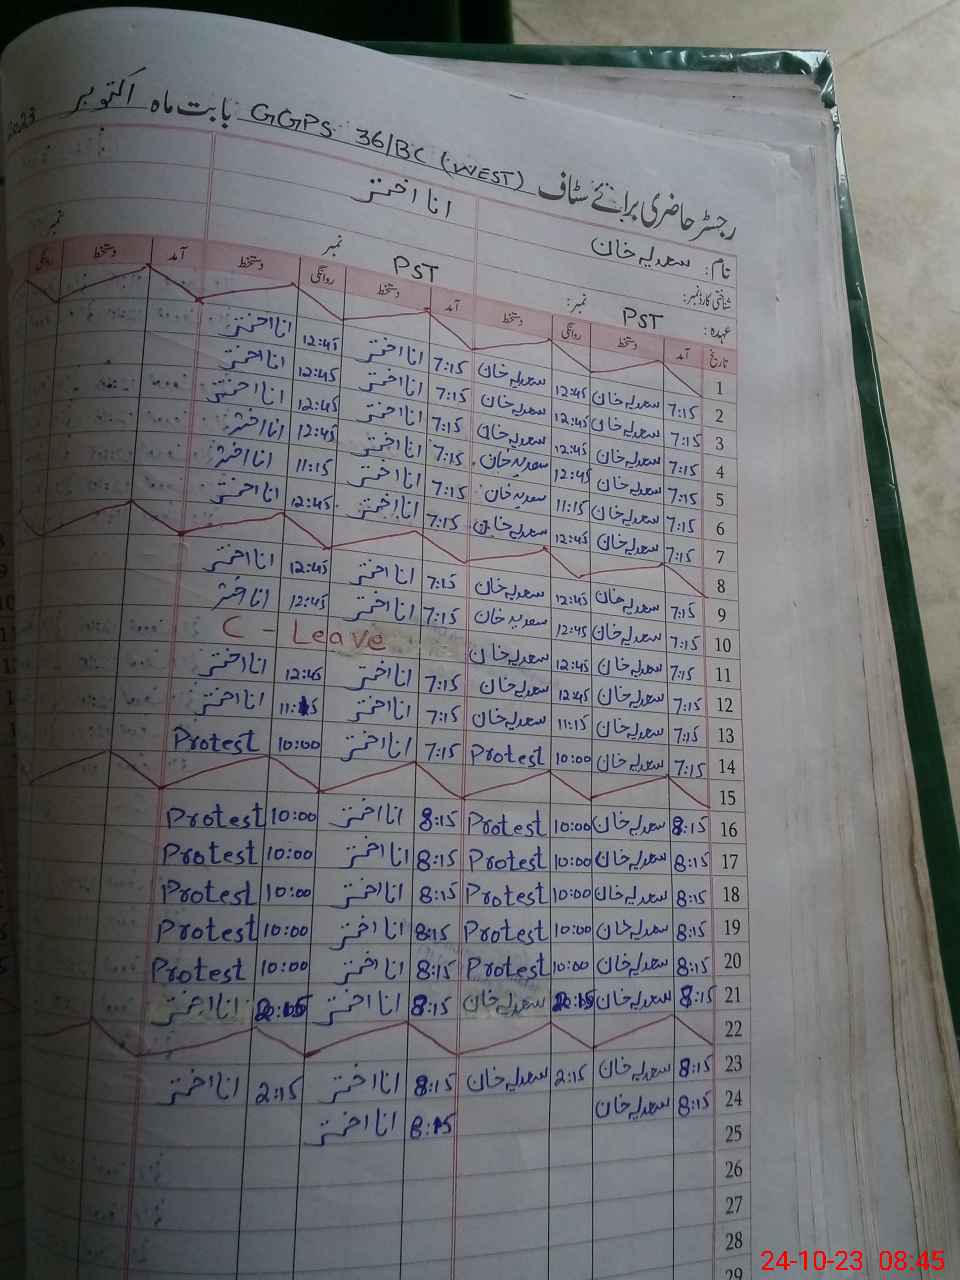 رجسٹر حاضری برائے سٹاف GGPS 36/BC (WEST) بابت ماہ اکتوبر 2023
نام: سعدیہ خان انا اختر
شناختی کارڈ نمبر:
عہدہ: PST نمبر: PST نمبر نمبر
تاریخ آمد دستخط روانگی دستخط آمد دستخط روانگی دستخط آمد دستخط روانگی
1
2 7:15 سعدیہ خان 12:45 سعدیہ خان 7:15 انا اختر 12:45 انا اختر
3 7:15 سعدیہ خان 12:45 سعدیہ خان 7:15 انا اختر 12:45 انا اختر
4 7:15 سعدیہ خان 12:45 سعدیہ خان 7:15 انا اختر 12:45 انا اختر
5 7:15 سعدیہ خان 12:45 سعدیہ خان 7:15 انا اختر 12:45 انا اختر
6 7:15 سعدیہ خان 11:15 سعدیہ خان 7:15 انا اختر 11:15 انا اختر
7 7:15 سعدیہ خان 12:45 سعدیہ خان 7:15 انا اختر 12:45 انا اختر
8
9 7:15 سعدیہ خان 12:45 سعدیہ خان 7:15 انا اختر 12:45 انا اختر
10 7:15 سعدیہ خان 12:45 سعدیہ خان 7:15 انا اختر 12:45 انا اختر
11 7:15 سعدیہ خان 12:45 سعدیہ خان C - Leave
12 7:15 سعدیہ خان 12:45 سعدیہ خان 7:15 انا اختر 12:45 انا اختر
13 7:15 سعدیہ خان 11:15 سعدیہ خان 7:15 انا اختر 11:15 انا اختر
14 7:15 سعدیہ خان 10:00 Protest 7:15 انا اختر 10:00 Protest
15
16 8:15 سعدیہ خان 10:00 Protest 8:15 انا اختر 10:00 Protest
17 8:15 سعدیہ خان 10:00 Protest 8:15 انا اختر 10:00 Protest
18 8:15 سعدیہ خان 10:00 Protest 8:15 انا اختر 10:00 Protest
19 8:15 سعدیہ خان 10:00 Protest 8:15 انا اختر 10:00 Protest
20 8:15 سعدیہ خان 10:00 Protest 8:15 انا اختر 10:00 Protest
21 8:15 سعدیہ خان سعدیہ خان 8:15 انا اختر انا اختر
22
23 8:15 سعدیہ خان 2:15 سعدیہ خان 8:15 انا اختر 2:15 انا اختر
24 8:15 سعدیہ خان 8:15 انا اختر
25
26
27
28
29
24-10-23 08:45